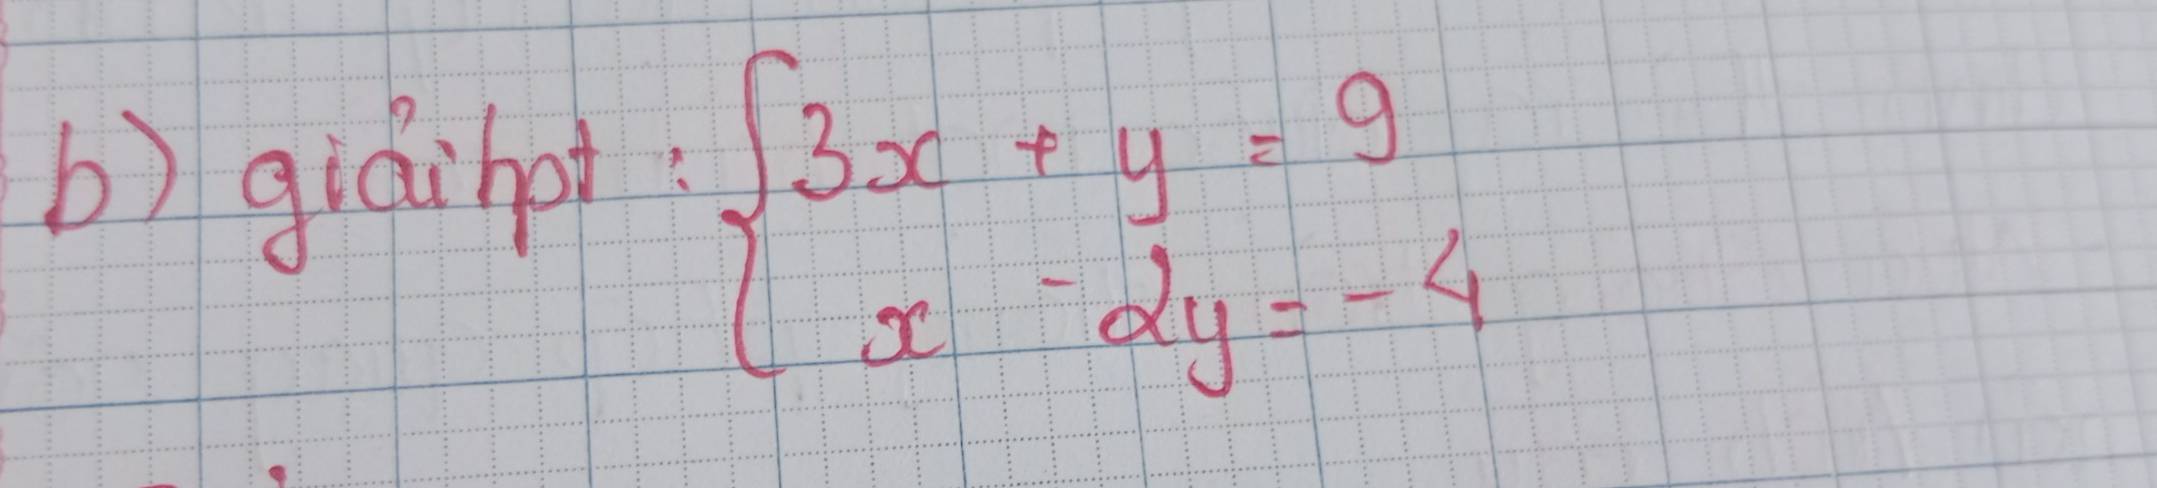 b) giải hpt : { 3x + y = 9
x - 2y = - 4